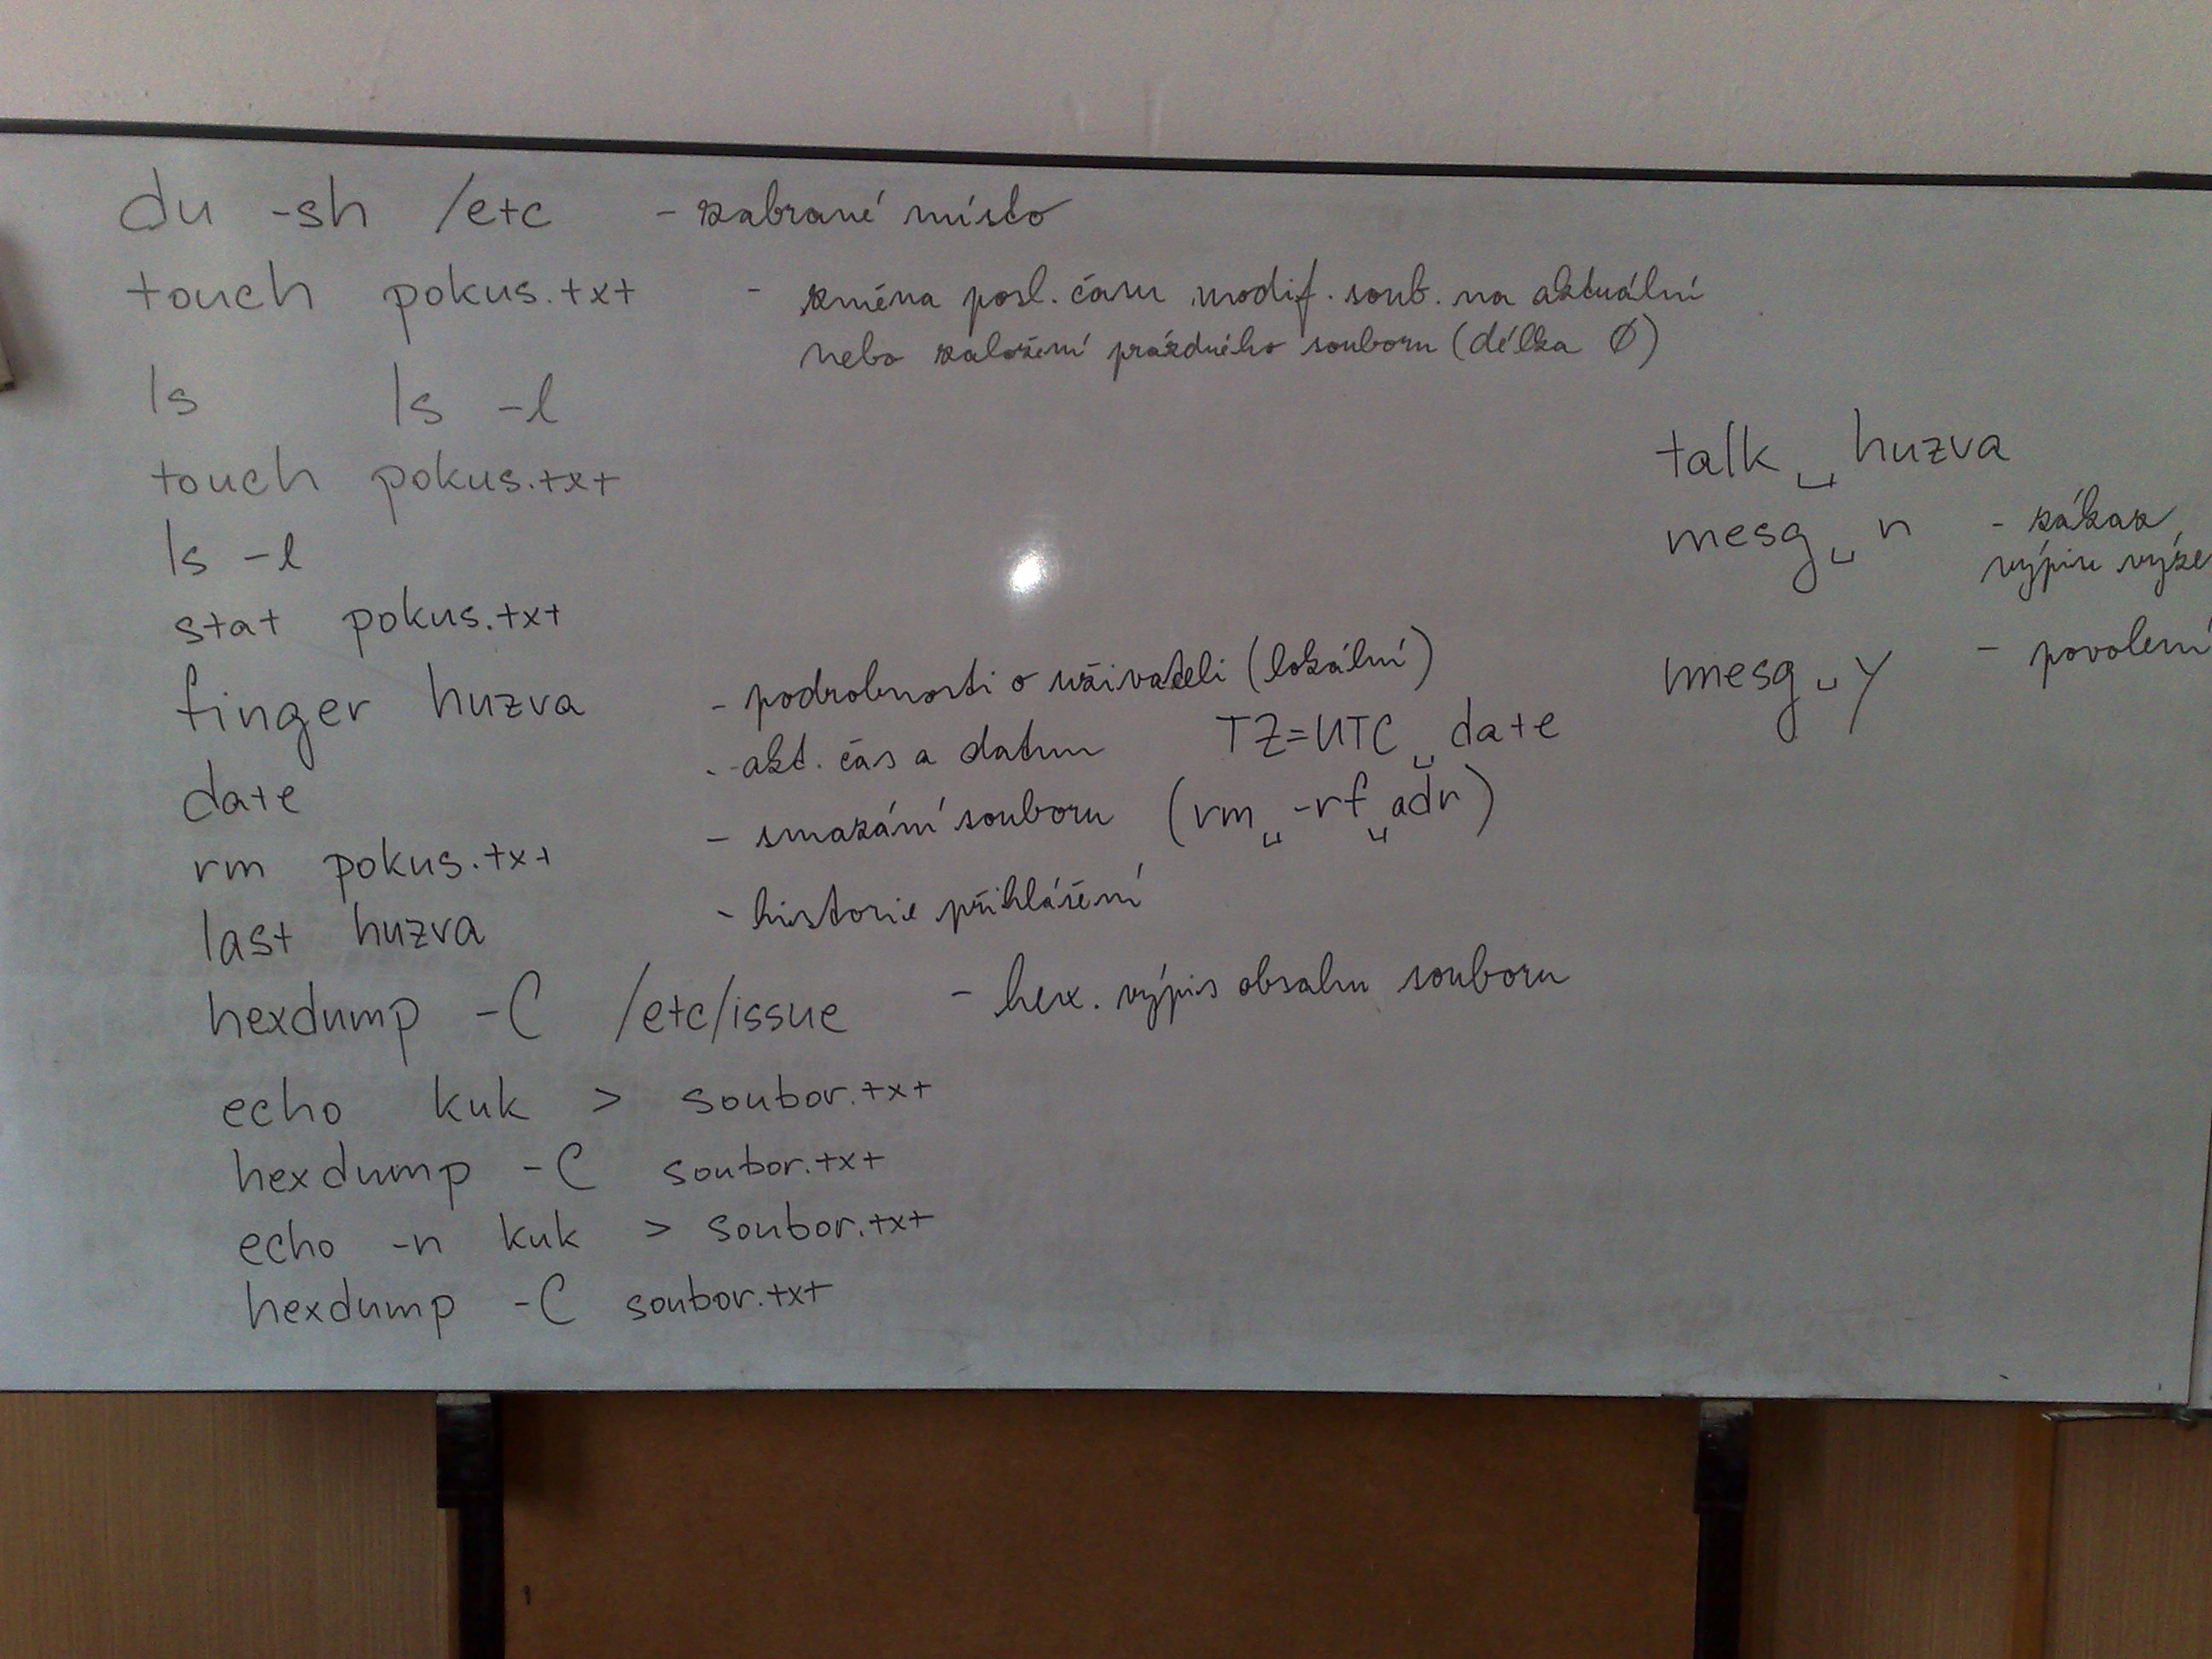 du -sh /etc - zabrané místo
touch pokus.txt - změna posl. času modif. soub. na aktuální
nebo založení prázdného souboru (délka Ø)
ls ls -l
touch pokus.txt
ls -l
stat pokus.txt
finger huzva - podrobnosti o uživateli (lokální)
date - akt. čas a datum TZ=UTC␣date
rm pokus.txt - smazání souboru (rm␣-rf␣adr)
last huzva - historie přihlášení
hexdump -C /etc/issue - hex. výpis obsahu souboru
echo kuk > soubor.txt
hexdump -C soubor.txt
echo -n kuk > soubor.txt
hexdump -C soubor.txt
talk␣huzva
mesg␣n - zákaz
výpisu výze
mesg␣y - povolení